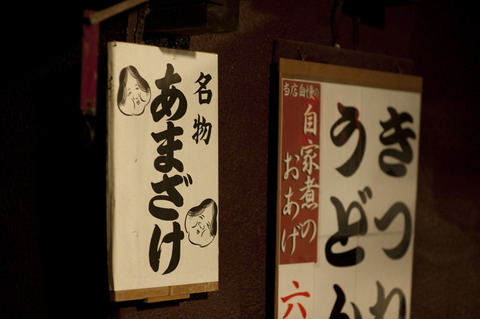 名物
あまざけ
きつね
うどん
当店自慢の
自家煮の
おあげ
六